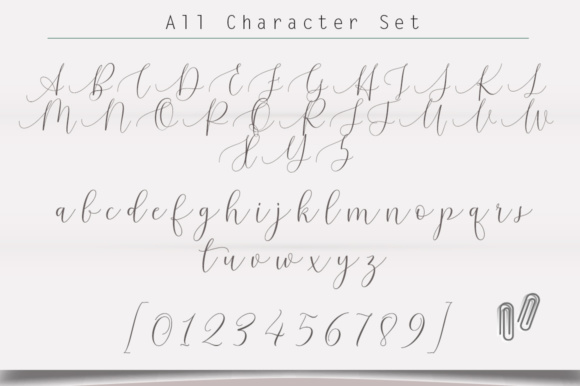 All Character Set
A B C D E F G H I J K L
M N O P Q R S T U V W
X Y Z
a b c d e f g h i j k l m n o p q r s
t u v w x y z
[ 0 1 2 3 4 5 6 7 8 9 ]